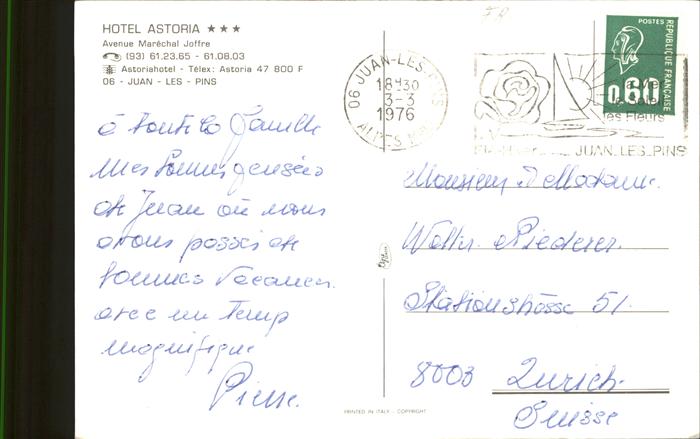 HOTEL ASTORIA ★★★
Avenue Maréchal Joffre
(93) 61.23.65 - 61.08.03
Astoriahotel - Télex: Astoria 47 800 F
06 - JUAN - LES - PINS
à toute la famille
Mes bonnes pensées
de Juan où nous
avons passés de
bonnes vacances
avec un temps
magnifique
Pierre.
06 JUAN-LES-PINS
18H30
3-3
1976
ALPES MMES
POSTES
RÉPUBLIQUE FRANÇAISE
0.60
les Fleurs
JUAN.LES.PINS
Monsieur & Madame.
Walter Riederer.
51.
8003 Zurich.
Suisse
PRINTED IN ITALY - COPYRIGHT